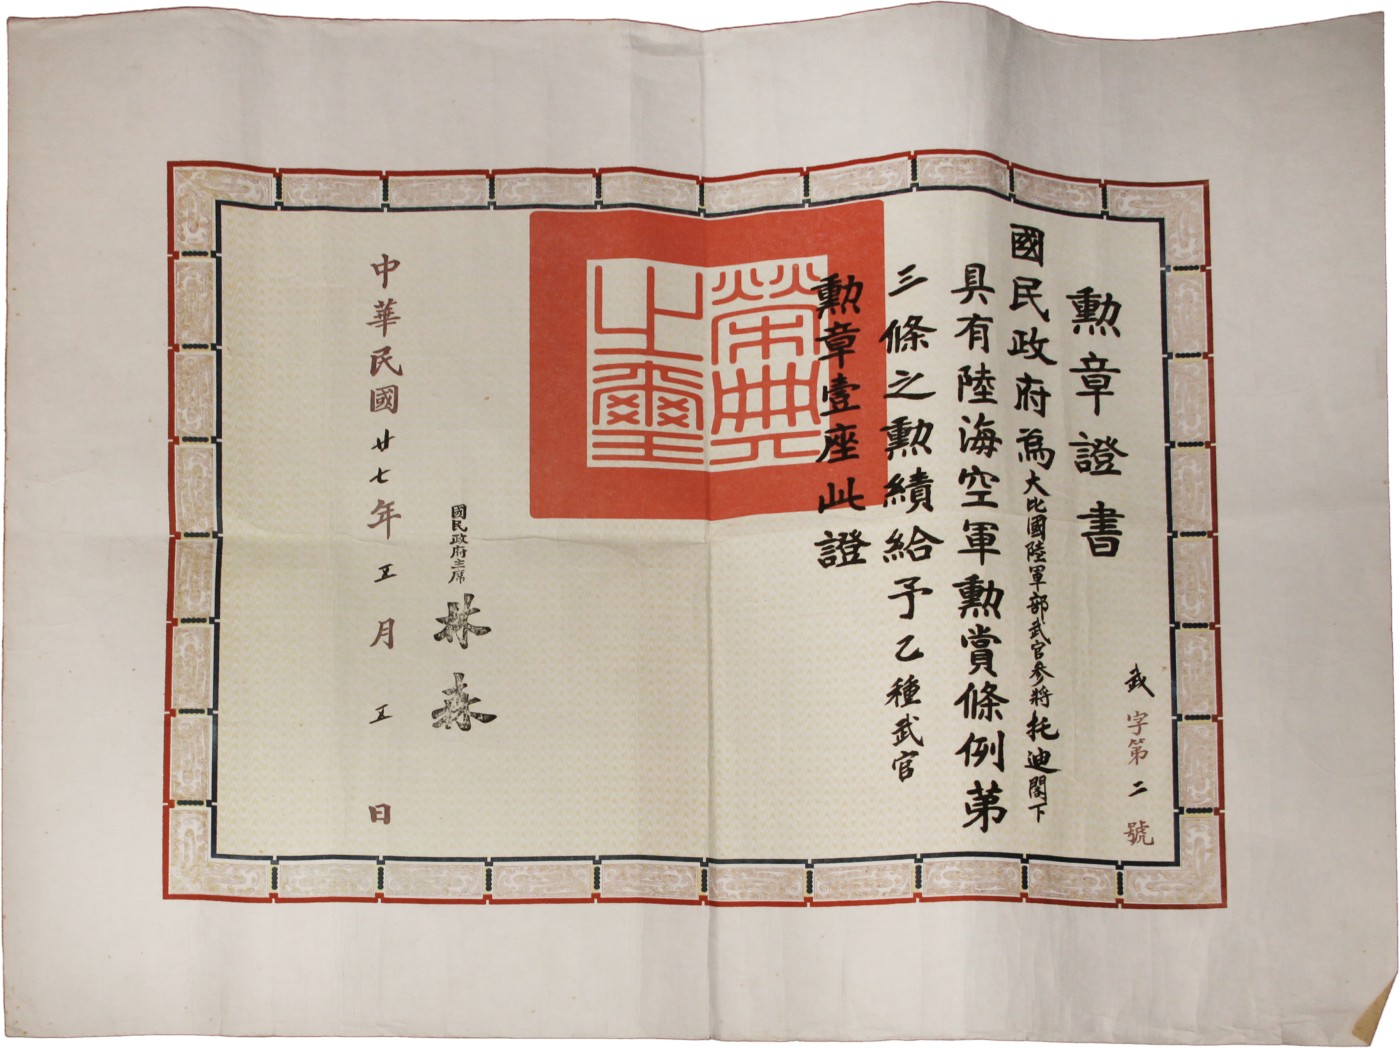 勳章證書
武字第二號
國民政府為大比國陸軍部武官參將托迪閣下
具有陸海空軍勳賞條例第
三條之勳績給予乙種武官
勳章壹座此證
榮典之璽
國民政府主席
林森
中華民國廿七年五月五日